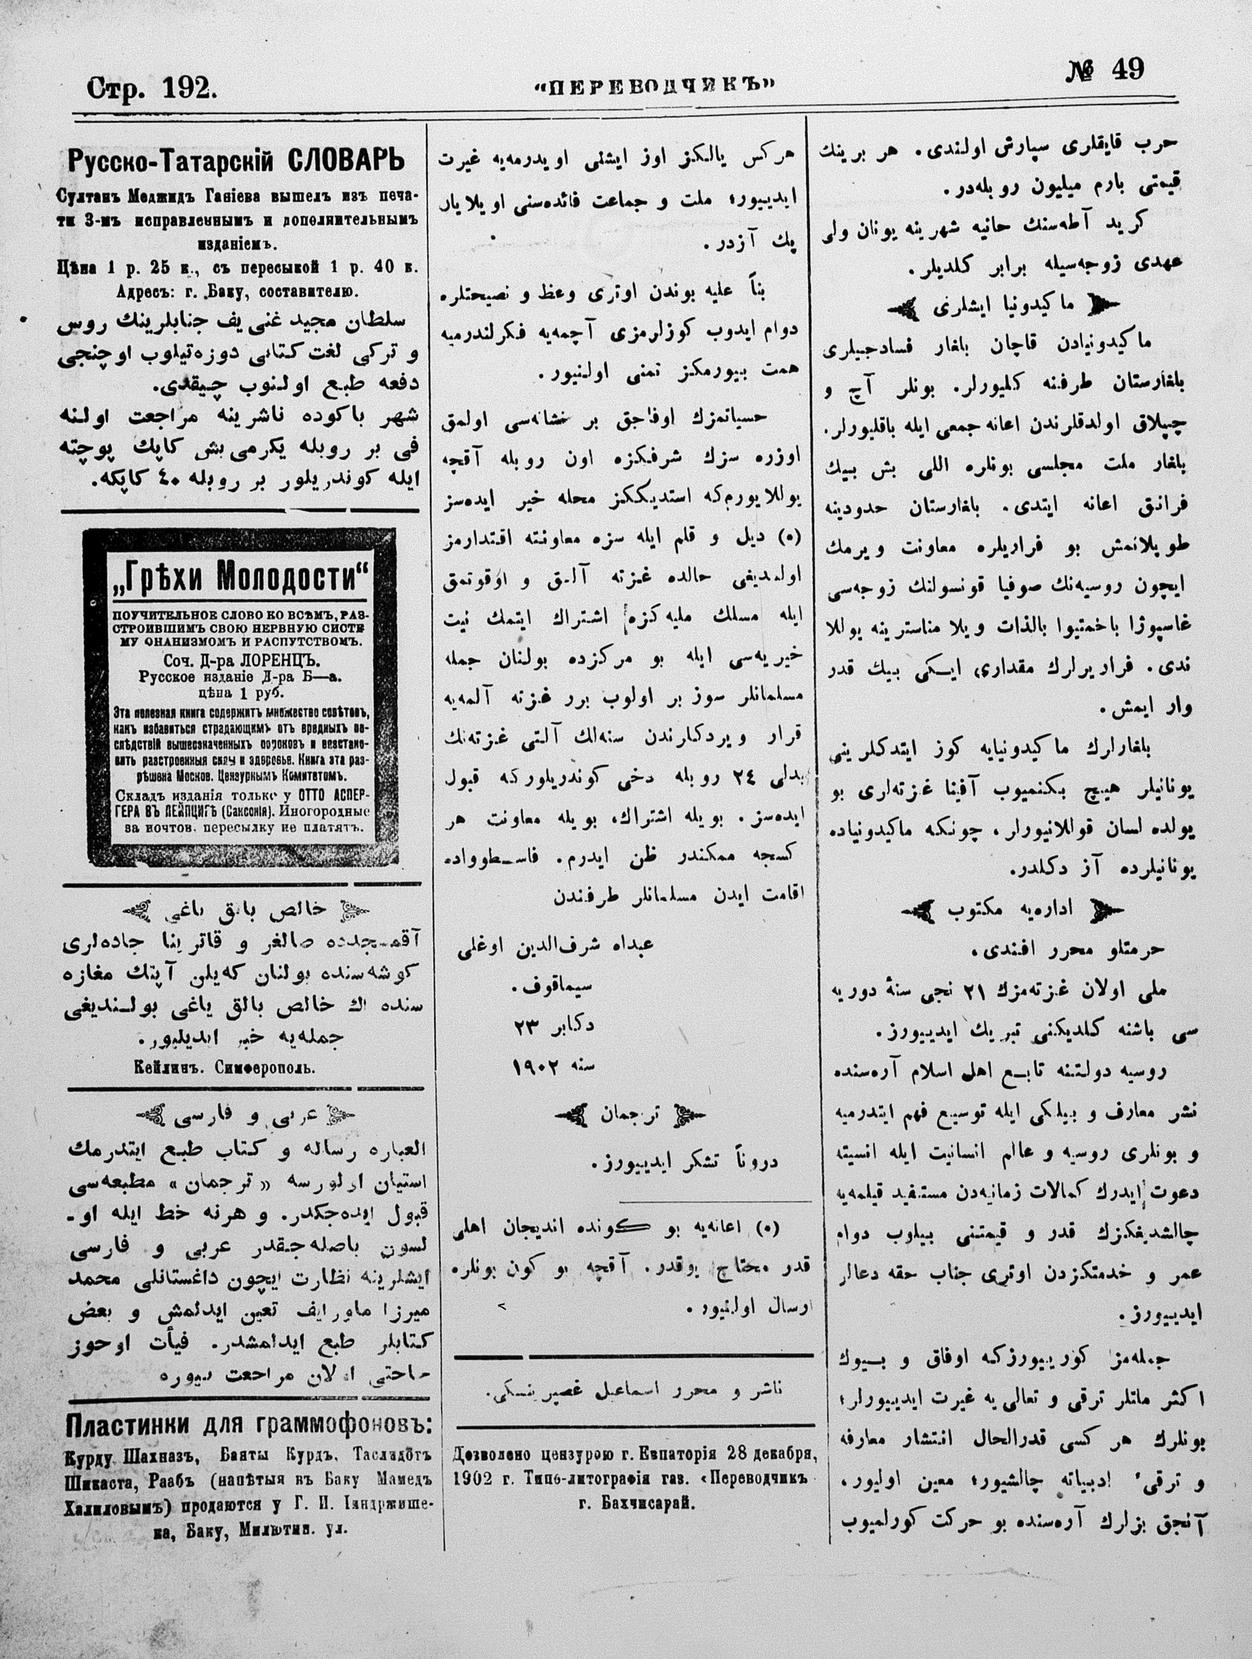 Стр. 192.
“ПЕРЕВОДЧИКЪ”
№ 49
حرب قایقلری سپارش اولندی. هر برینك
قیمتی یارم میلیون روبله‌در.
كرید آطه‌سنك حانیه شهرینه یونان ولی
عهدی زوجه‌سیله برابر كلدیلر.
ماكیدونیا ایشلری
ماكیدونیادن قاچان بلغار فسادجیلری
بلغارستان طرفنه كلیورلر. بونلر آچ و
چیپلاق اولدقلرندن اعانه جمعی ایله باقلیورلر.
بلغار ملت مجلسی بونلره اللی بش بیك
فرانق اعانه ایتدی. بلغارستان حدودینه
طوپلانمش بو فراریلره معاونت ویرمك
ایچون روسیه‌نك صوفیا قونسولنك زوجه‌سی
غاسپوژا باخمتیوا بالذات ویلا مناسترینه یوللا
ندی. فراریرلرك مقداری ایكی بیك قدر
وار ایمش.
بلغارلرك ماكیدونیایه كوز ایتدكلرینی
یونانیلر هیچ بكنمیوب آفینا غزته‌لری بو
یولده لسان قوللانیورلر، چونكه ماكیدونیاده
یونانیلرده آز دكلدر.
اداره‌یه مكتوب
حرمتلو محرر افندی.
ملی اولان غزته‌مزك ٢١ نجی سنۀ دوریه
سی باشنه كلدیكنی تبریك ایدییورز.
روسیه دولتنه تابع اهل اسلام آره‌سنده
نشر معارف و بیلكی ایله توسیع فهم ایتدرمیه
و بونلری روسیه و عالم انسانیت ایله انسیته
دعوت ایدرك كمالات زمانیه‌دن مستفید قیلمه‌یه
چالشدیغكزك قدر و قیمتنی بیلوب دوام
عمر و خدمتكزدن اوتری جناب حقه دعالر
ایدییورز.
جمله‌مز كورییورزكه اوفاق و بیوك
اكثر ملتلر ترقی و تعالی یه غیرت ایدییورلر؛
بونلرك هر كسی قدرالحال انتشار معارفه
و ترقیٔ ادبیاته چالشیور؛ معین اولیور.
آنجق بزلرك آره‌سنده بو حركت كورلمیوب
هركس یالكز اوز ایشنی اویدرمه‌یه غیرت
ایدییور؛ ملت و جماعت فائده‌سنی اویلایان
پك آزدر.
بناً علیه بوندن اوتری وعظ و نصیحتلره
دوام ایدوب كوزلرمزی آچمه‌یه فكرلندرمیه
همت بیورمكز تمنی اولنیور.
حسیاتمزك اوفاجق بر نشانه‌سی اولمق
اوزره سزك شرفكزه اون روبله آقچه
یوللایورم‌كه استدیككز محله خیر ایده‌سز
(٥) دیل و قلم ایله سزه معاونته اقتدارمز
اولمدیغی حالده غزته آلمق و اوقوتمق
ایله مسلك ملیه‌كزه اشتراك ایتمك نیت
خیریه‌سی ایله بو مركزده بولنان جمله
مسلمانلر سوز بر اولوب برر غزته آلمه‌یه
قرار ویردكلرندن سنه‌لك آلتی غزته‌نك
بدلی ٢٤ روبله دخی كوندریلوركه قبول
ایده‌سز. بویله اشتراك، بویله معاونت هر
كسجه ممكندر ظن ایدرم. فاسطوواده
اقامت ایدن مسلمانلر طرفندن
عبداه شرف‌الدین اوغلی
سیماقوف.
دكابر ٢٣
سنه ١٩٠٢
ترجمان
دروناً تشكر ایدییورز.
(٥) اعانه‌یه بو كونده اندیجان اهلی
قدر محتاج یوقدر. آقچه بو كون بونلره
ارسال اولنیور.
ناشر و محرر اسماعیل غصپرینسكی.
Дозволено цензурою г. Евпаторія 28 декабря,
1902 г. Типо-литографія газ. «Переводчик
г. Бахчисарай.
Русско-Татарскій СЛОВАРЬ
Султанъ Меджидъ Ганіева вышелъ изъ печа-
ти 3-мъ исправленнымъ и дополнительнымъ
изданіемъ.
Цѣна 1 р. 25 к., съ пересыкой 1 р. 40 к.
Адресъ: г. Баку, составителю.
سلطان مجید غنی یف جنابلرینك روس
و تركی لغت كتابی دوزه‌تیلوب اوچنجی
دفعه طبع اولنوب چیقدی.
شهر باكوده ناشرینه مراجعت اولنه
فی بر روبله یكرمی بش كاپك پوچته
ایله كوندریلور بر روبله ٤٠ كاپكه.
„Грѣхи Молодости“
ПОУЧИТЕЛЬНОЕ СЛОВО КО ВСѢМЪ, РАЗ-
СТРОИВШИМЪ СВОЮ НЕРВНУЮ СИСТЕ
МУ ОНАНИЗМОМЪ И РАСПУТСТВОМЪ.
Соч. Д-ра ЛОРЕНЦЪ.
Русское изданіе Д-ра Б—а.
цѣна 1 руб.
Эта полезная книга содержитъ множество совѣтовъ,
какъ избавиться страдающимъ отъ вредныхъ по-
слѣдствій вышесказанныхъ пороковъ и возстано-
вить разстроенныя силы и здоровье. Книга эта раз-
рѣшена Москов. Цензурнымъ Комитетомъ.
Складъ изданія только у ОТТО АСПЕР-
ГЕРА ВЪ ЛЕЙПЦИГѢ (Саксонія). Иногородные
за почтов. пересылку не платятъ.
خالص بالق یاغی
آقمسجدده صالغر و قاترینا جاده‌لری
كوشه‌سنده بولنان كه‌یلن آپتك مغازه
سنده اك خالص بالق یاغی بولندیغی
جمله‌یه خبر ایدیلیور.
Кейлинъ. Симферополь.
عربی و فارسی
العباره رساله و كتاب طبع ایتدرمك
استیان اولورسه «ترجمان» مطبعه‌سی
قبول ایده‌جكدر. و هرنه خط ایله او-
لسون باصله‌جقدر عربی و فارسی
ایشلرینه نظارت ایچون داغستانلی محمد
میرزا ماورایف تعین ایدلمش و بعض
كتابلر طبع ایدلمشدر. فیأت اوجوز
احتی اولان مراجعت بیوره
Пластинки для граммофоновъ:
Курду Шахназъ, Баяты Курдъ, Тасладотъ
Шикаста, Раабъ (напѣтыя въ Баку Мамедъ
Халиловымъ) продаются у Г. И.
на, Баку, Милютин. ул.